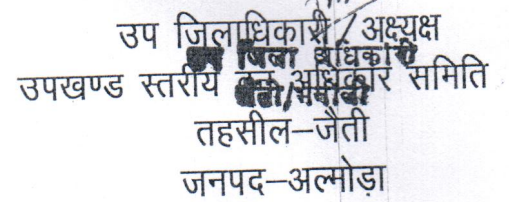 उप जिलाधिकारी/अक्ष्यक्ष
उप जिला अधिकारी
उपखण्ड स्तरीय वन अधिकार समिति
जैती/भनोली
तहसील–जैती
जनपद–अल्मोड़ा